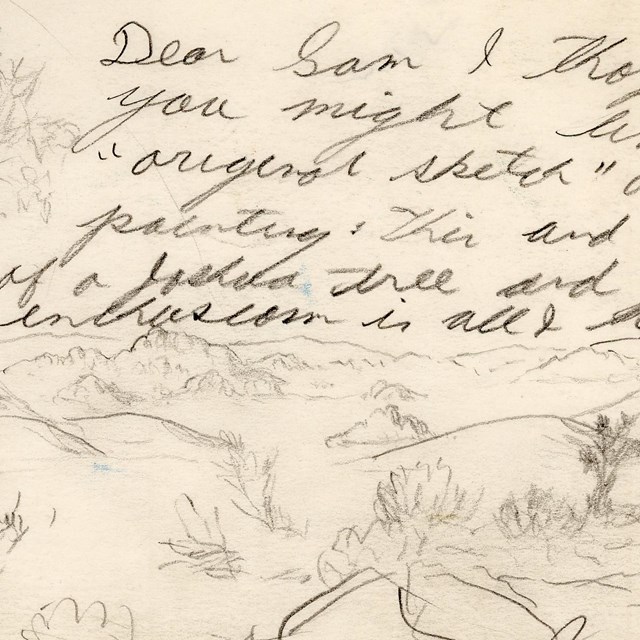 Dear Sam I
you might
"original sketch"
painting: This and
of a Joshua tree and
enthusiasm is all I